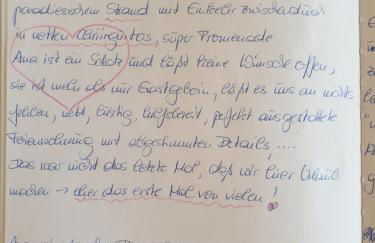 paradiesischem Strand mit Einkehr zwischendurch
in netten Chiringuitos, super Promenade.
Ana ist ein Schatz und läßt keine Wünsche offen,
sie ist mehr als nur Gastgeberin, läßt es uns an nichts
fehlen, nett, lustig, hilfsbereit, perfekt ausgestattete
Ferienwohnung mit abgestimmten Details, ....
Das war nicht das letzte Mal, daß wir hier Urlaub
machen → eher das erste Mal von vielen!